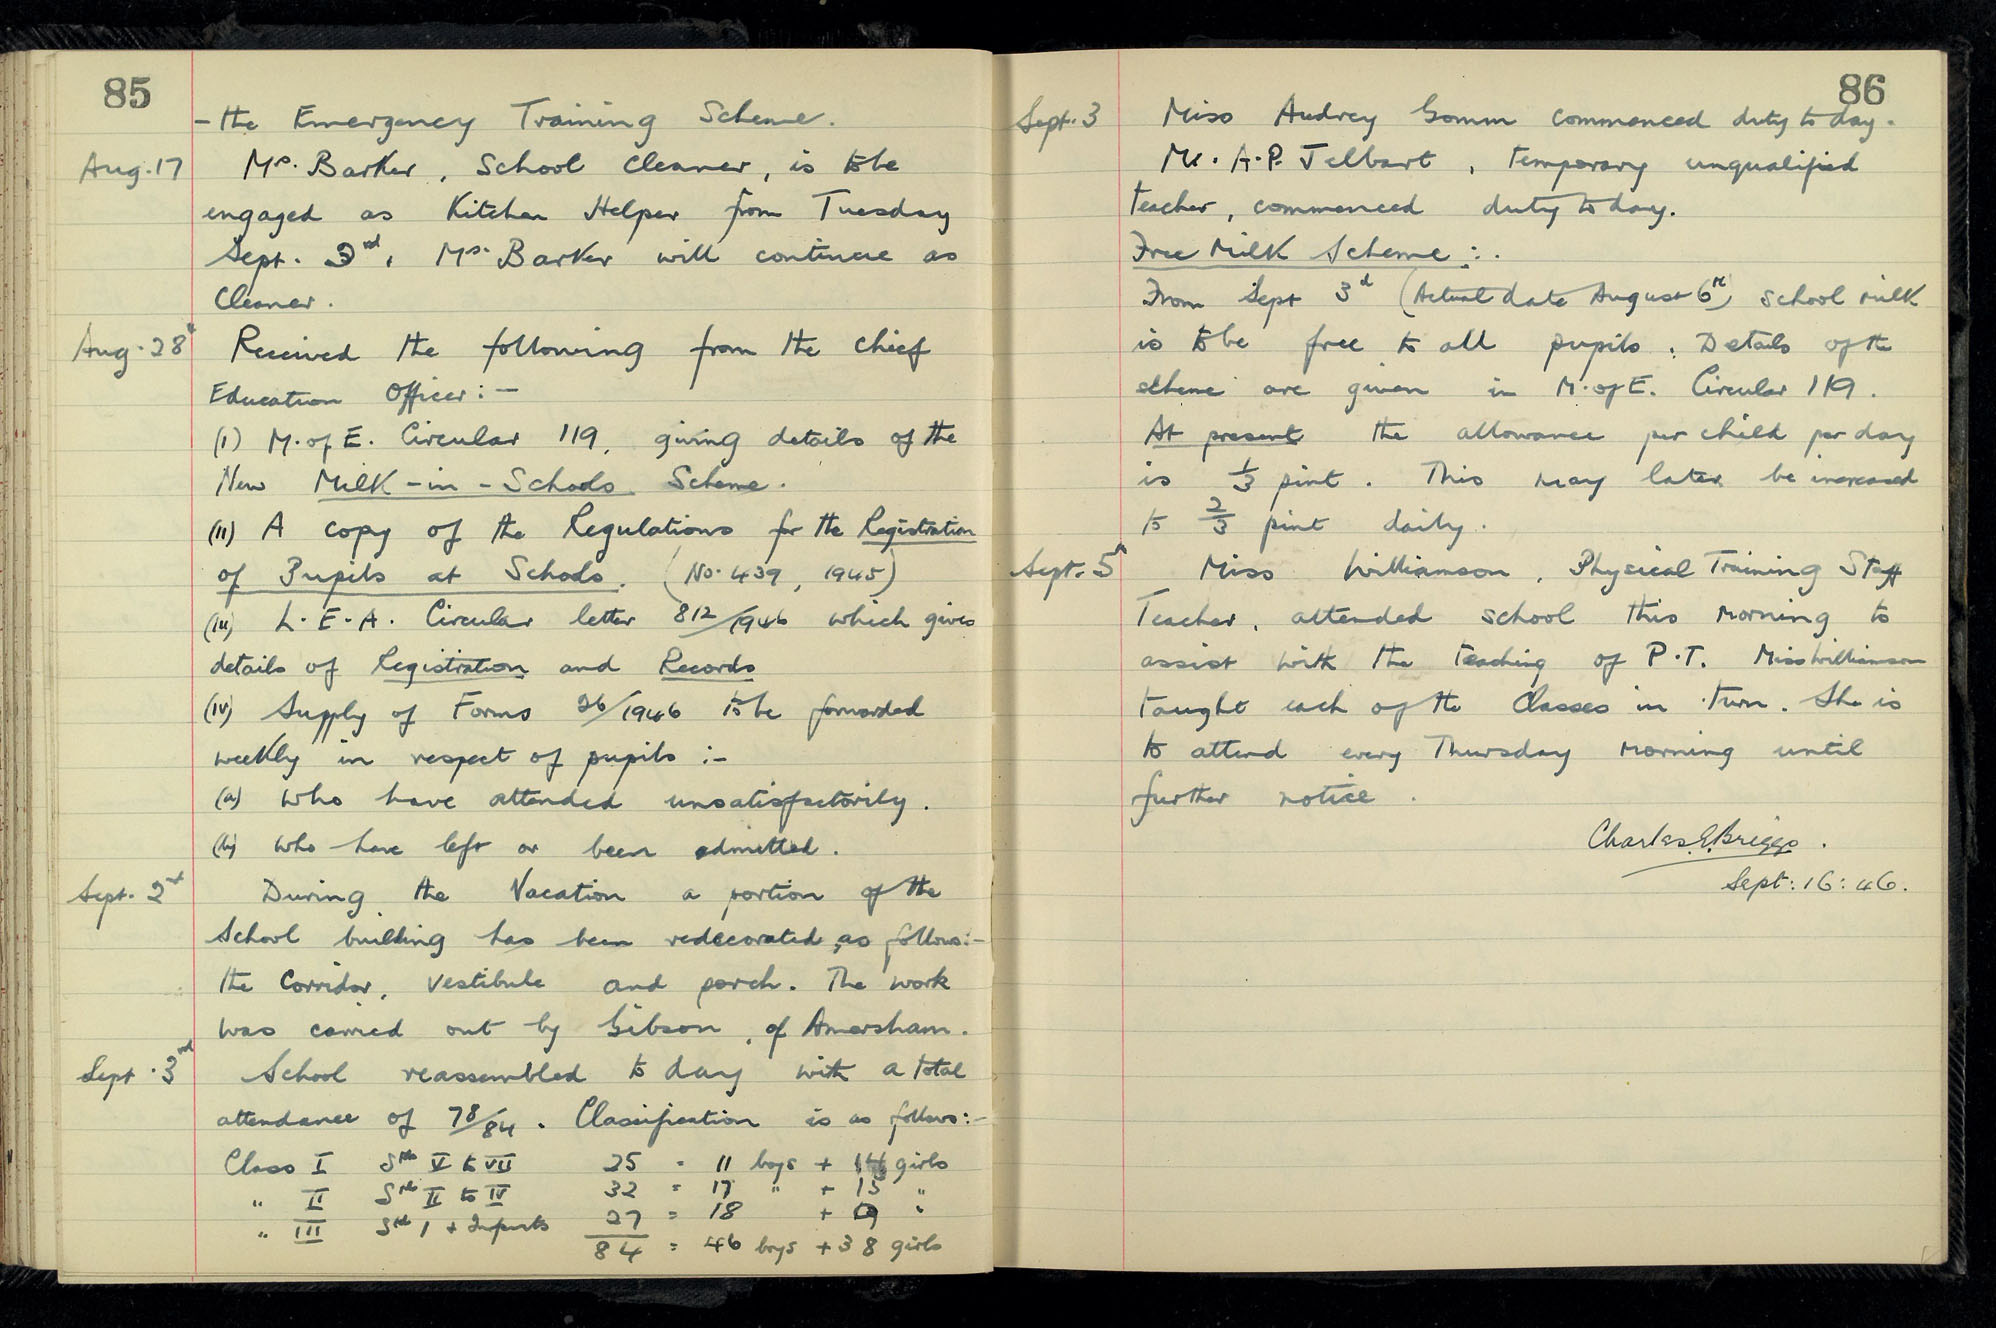 85
- the Emergency Training Scheme.
Aug. 17 Mrs. Barker, School Cleaner, is to be
engaged as Kitchen Helper from Tuesday
Sept. 3rd. Mrs. Barker will continue as
Cleaner.
Aug. 28th Received the following from the Chief
Education Officer:-
(i) M. of E. Circular 119, giving details of the
New Milk-in-Schools Scheme.
(ii) A copy of the Regulations for the Registration
of Pupils at Schools. (No. 439, 1945)
(iii) L.E.A. Circular letter 812/1946 which gives
details of Registration and Records
(iv) Supply of Forms 26/1946 to be forwarded
weekly in respect of pupils :-
(a) Who have attended unsatisfactorily.
(b) Who have left or been admitted.
Sept. 2nd During the Vacation a portion of the
School building has been redecorated, as follows:-
the Corridor, Vestibule and porch. The work
was carried out by Gibson, of Amersham.
Sept. 3rd School reassembled to day with a total
attendance of 78/84. Classification is as follows:-
Class I Stds V to VII 25 = 11 boys + 14 girls
" II Stds II to IV 32 = 17 " + 15 "
" III Std 1 + Infants 27 = 18 + 9 "
84 = 46 boys + 38 girls
86
Sept. 3 Miss Audrey Gomm commenced duty to day.
Mr. A.P. Jelbart, temporary unqualified
teacher, commenced duty to day.
Free Milk Scheme:.
From Sept 3d (Actual date August 6th) school milk
is to be free to all pupils. Details of the
scheme are given in M. of E. Circular 119.
At present the allowance per child per day
is 1/3 pint. This may later be increased
to 2/3 pint daily.
Sept. 5th Miss Williamson, Physical Training Staff
Teacher, attended school this morning to
assist with the teaching of P.T. Miss Williamson
taught each of the Classes in turn. She is
to attend every Thursday morning until
further notice.
Charles E. Briggs.
Sept: 16: 46.